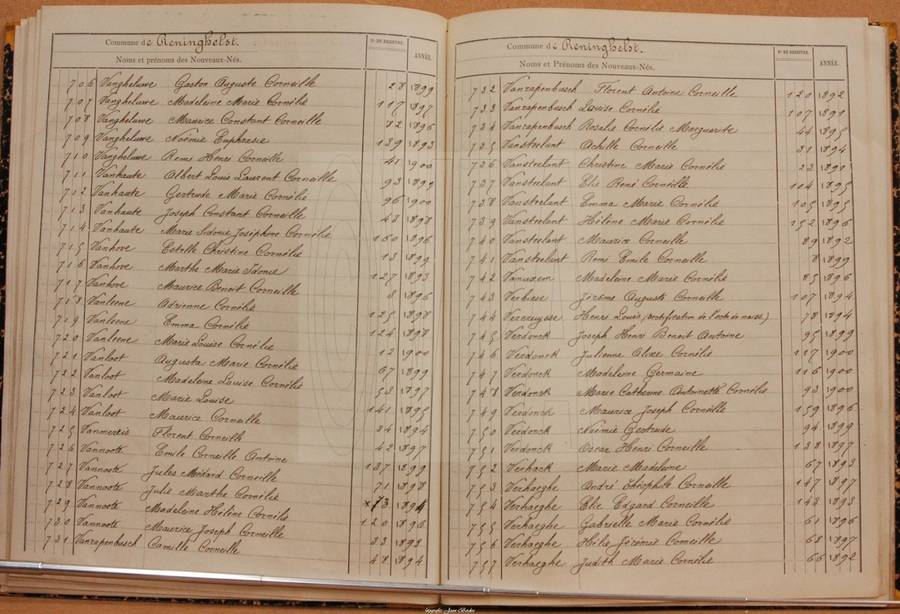 Commune de Reninghelst.
Nos DE REGISTRE. ANNÉE.
Noms et prénoms des Nouveaux-Nés.
706 Vangheluwe Gaston Auguste Corneille 28 1899
707 Vangheluwe Madeleine Marie Cornélie 117 1897
708 Vangheluwe Maurice Constant Corneille 82 1896
709 Vangheluwe Noémie Euphrasie 139 1893
710 Vangheluwe Remi Henri Corneille 41 1900
711 Vanhaute Albert Louis Laurent Corneille 93 1899
712 Vanhaute Gertrude Marie Cornélie 96 1900
713 Vanhaute Joseph Constant Corneille 43 1898
714 Vanhaute Marie Sidonie Joséphine Cornélie 160 1896
715 Vanhove Estelle Christine Cornélie 13 1899
716 Vanhove Marthe Marie Sidonie 127 1893
717 Vanhove Maurice Benoit Corneille 8 1896
718 Vanleene Adrienne Cornélie 125 1898
719 Vanleene Emma Cornélie 124 1898
720 Vanleene Marie Louise Cornélie 12 1900
721 Vanloot Augusta Marie Cornélie 67 1899
722 Vanloot Madeleine Louise Cornélie 53 1897
723 Vanloot Marie Louise 141 1895
724 Vanloot Maurice Corneille 34 1894
725 Florent Corneille 42 1897
726 Vannoote Emile Corneille Antoine 137 1899
727 Vannoote Jules Médard Corneille 71 1898
728 Vannoote Julie Marthe Cornélie 1894
729 Vannoote Madeleine Hélène Cornélie 120 1896
730 Vannoote Maurice Joseph Corneille 33 1893
731 Vanrapenbusch Camille Corneille 48 1894
Commune de Reninghelst.
Nos DE REGISTRE. ANNÉE.
Noms et Prénoms des Nouveaux-Nés.
732 Vanrapenbusch Florent Antoine Corneille 120 1892
733 Vanrapenbusch Louise Cornélie 107 1891
734 Vanrapenbusch Rosalie Cornélie Marguerite 44 1895
735 Vanstrelant Achille Corneille 31 1894
736 Vanstrelant Christine Marie Cornélie 23 1891
737 Vanstrelant Elie René Corneille 104 1895
738 Vanstrelant Emma Marie Cornélie 105 1895
739 Vanstrelant Hélène Marie Cornélie 152 1896
740 Vanstrelant Maurice Corneille 89 1892
741 Vanstrelant Remi Emile Corneille 8 1899
742 Vanuxem Madeleine Marie Cornélie 85 1896
743 Verbiese Jérôme Auguste Corneille 107 1894
744 Vercruysse Henri Louis, (rectification de l'acte de naiss.) 78 1894
745 Verdonck Joseph Henri Benoit Antoine 95 1899
746 Verdonck Julienne Alice Cornélie 117 1900
747 Verdonck Madeleine Germaine 116 1900
748 Verdonck Marie Catherine Antoinette Cornélie 93 1900
749 Verdonck Maurice Joseph Corneille 159 1896
750 Verdonck Noémie Gertrude 94 1899
751 Verdonck Oscar Henri Corneille 138 1897
752 Verhack Marie Madeleine 67 1893
753 Verhaeghe André Théophile Corneille 147 1897
754 Verhaeghe Elie Edgard Corneille 148 1893
755 Verhaeghe Gabrielle Marie Cornélie 61 1896
756 Verhaeghe Jérémie Corneille 68 1897
757 Verhaeghe Judith Marie Cornélie 66 1892